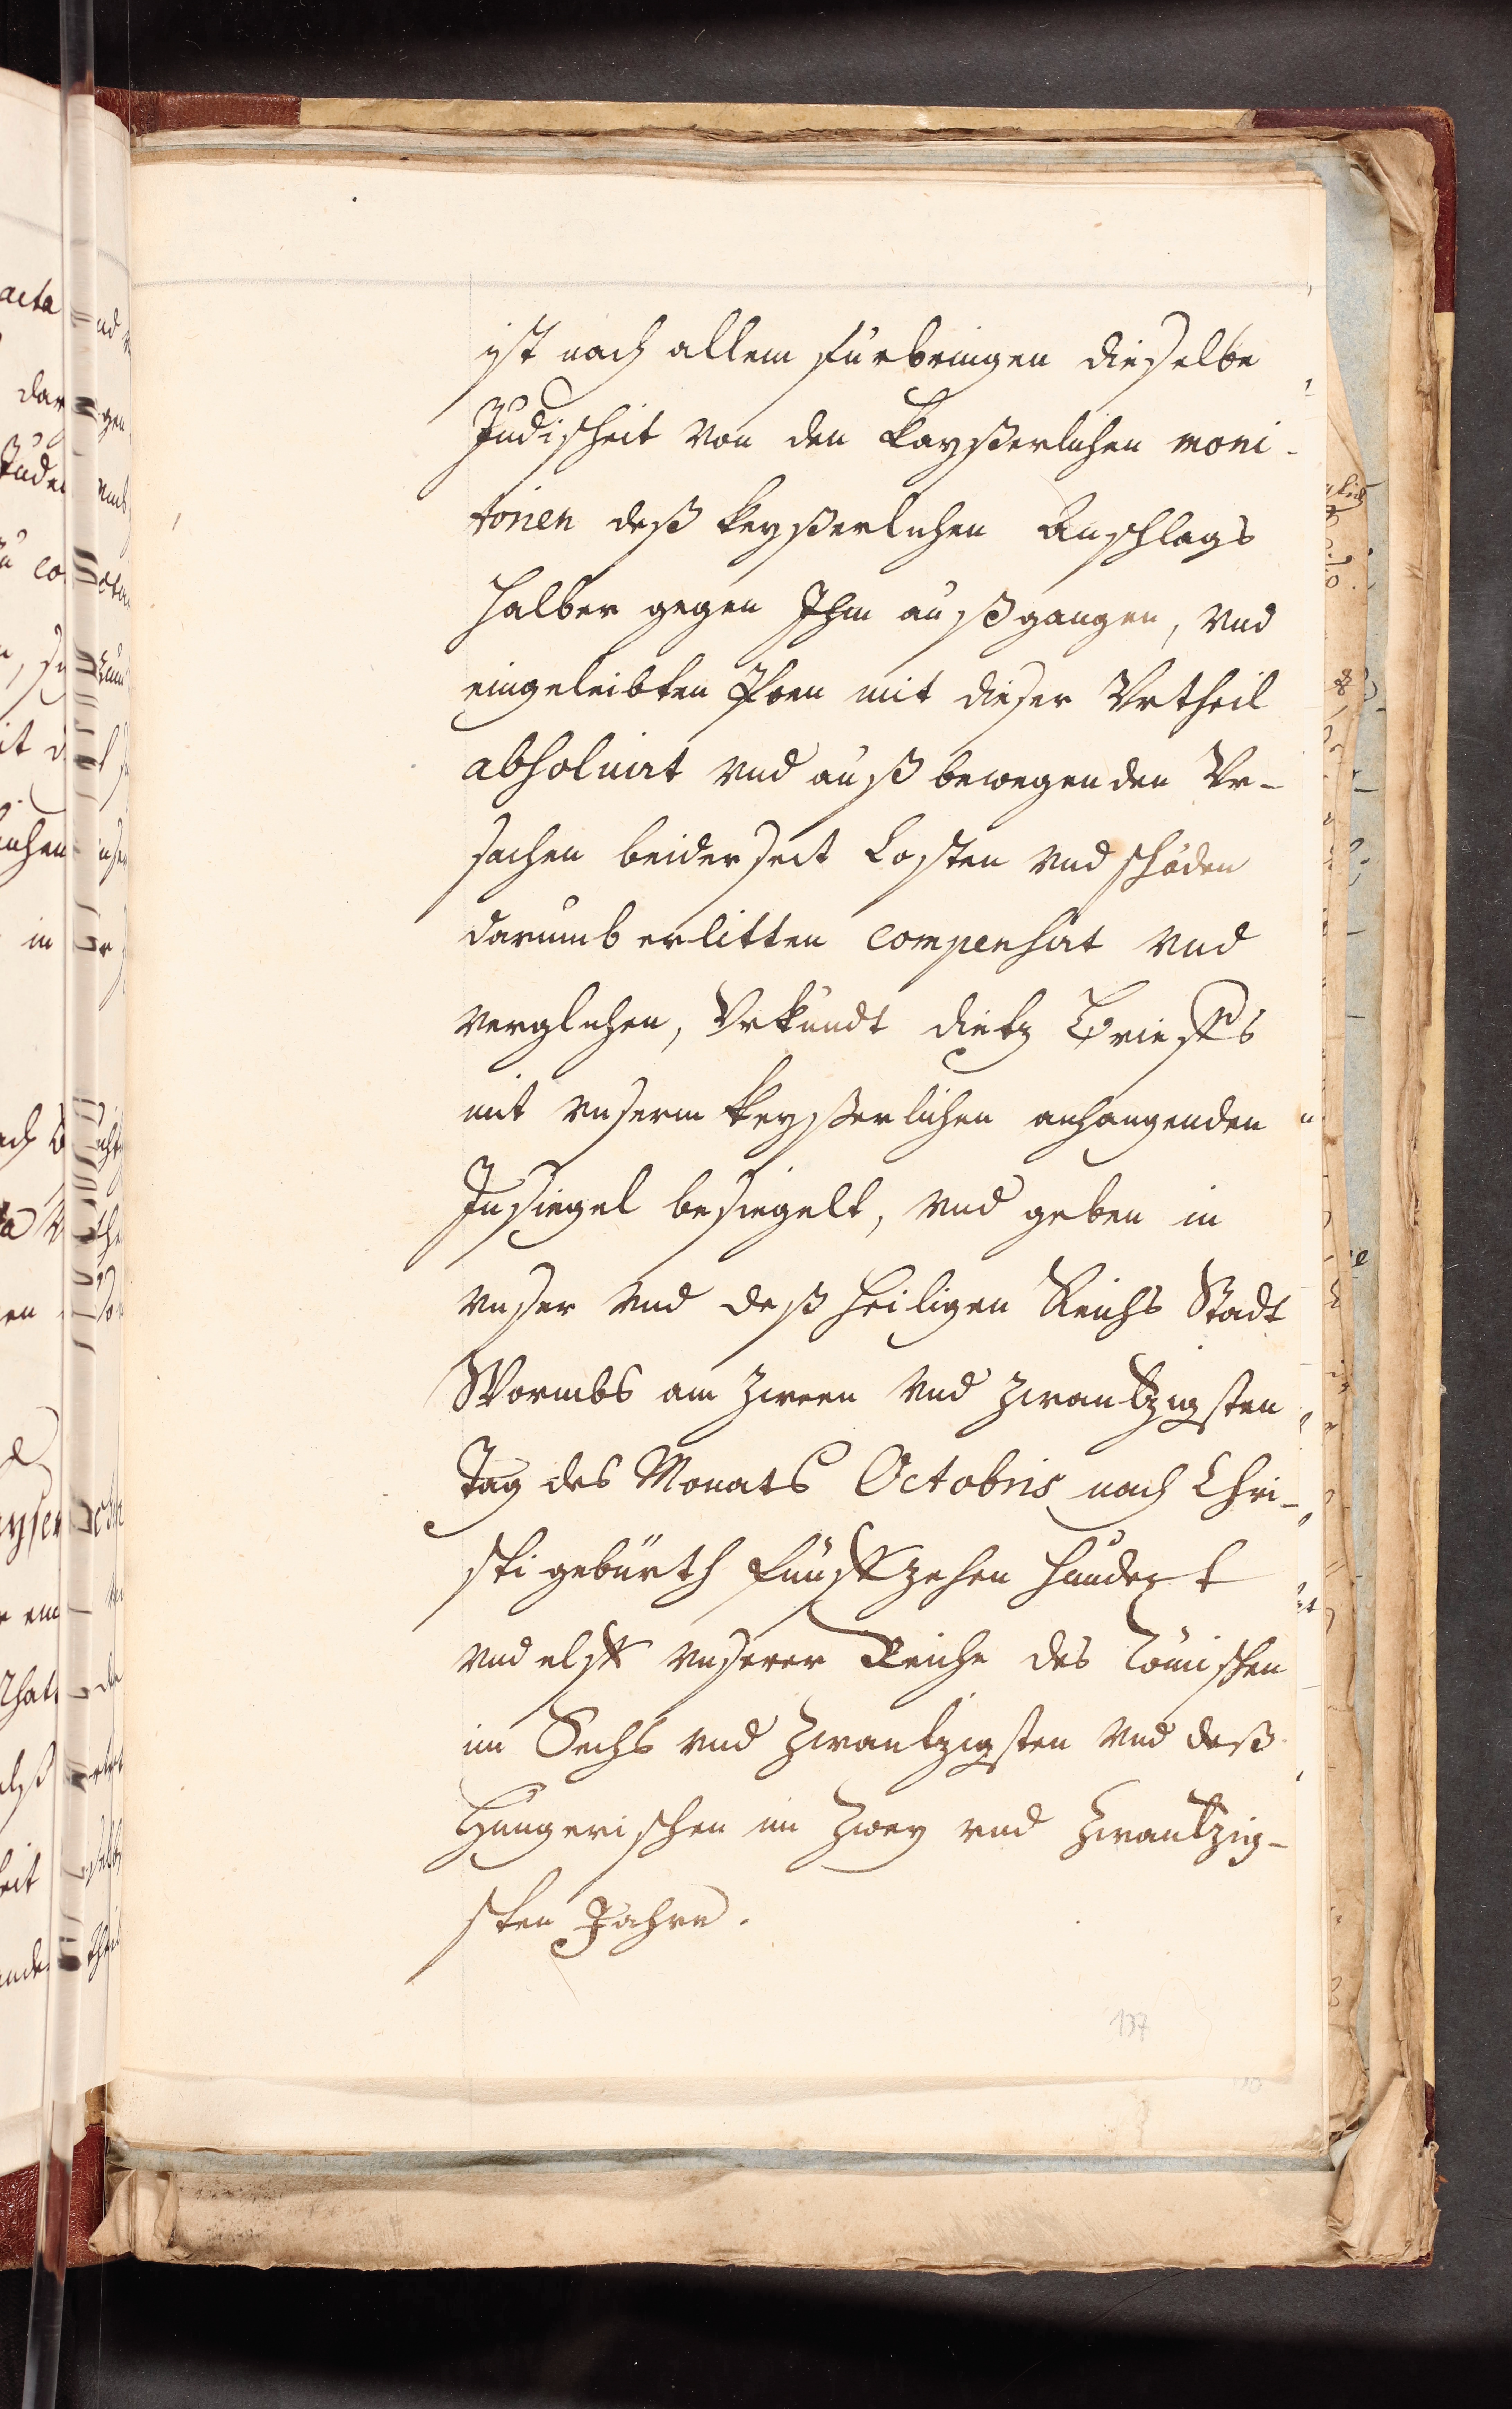 ist nach allem fürbringen dieselbe
Judischeit von den Kayßerlichen moni-
torien deß keyßerlichen Anschlags
halber gegen Ihm außgangen, vnd
eingeleibten Poen mit dieser Vrtheil
absoluirt vnd auß bewegenden Vr-
sachen beiderseit Costen vnd schäden
darumb erlitten compensirt vnd
verglichen, Vrkundt dietz Brieffs
mit vnserm keyßerlichen anhangenden
Insiegel besiegelt, vnd geben in
vnser vnd deß heiligen Reichs Stadt
Wormbs am zween vnd zwantzigsten
Tag des Monats Octobris nach Chri-
sti gebürth fünffzehen hundert
vnd elff vnserer Reiche des Römischen
im Sechs vnd zwantzigsten vnd deß
Hungerischen im zwey vnd zwantzig-
sten Jahre.
137